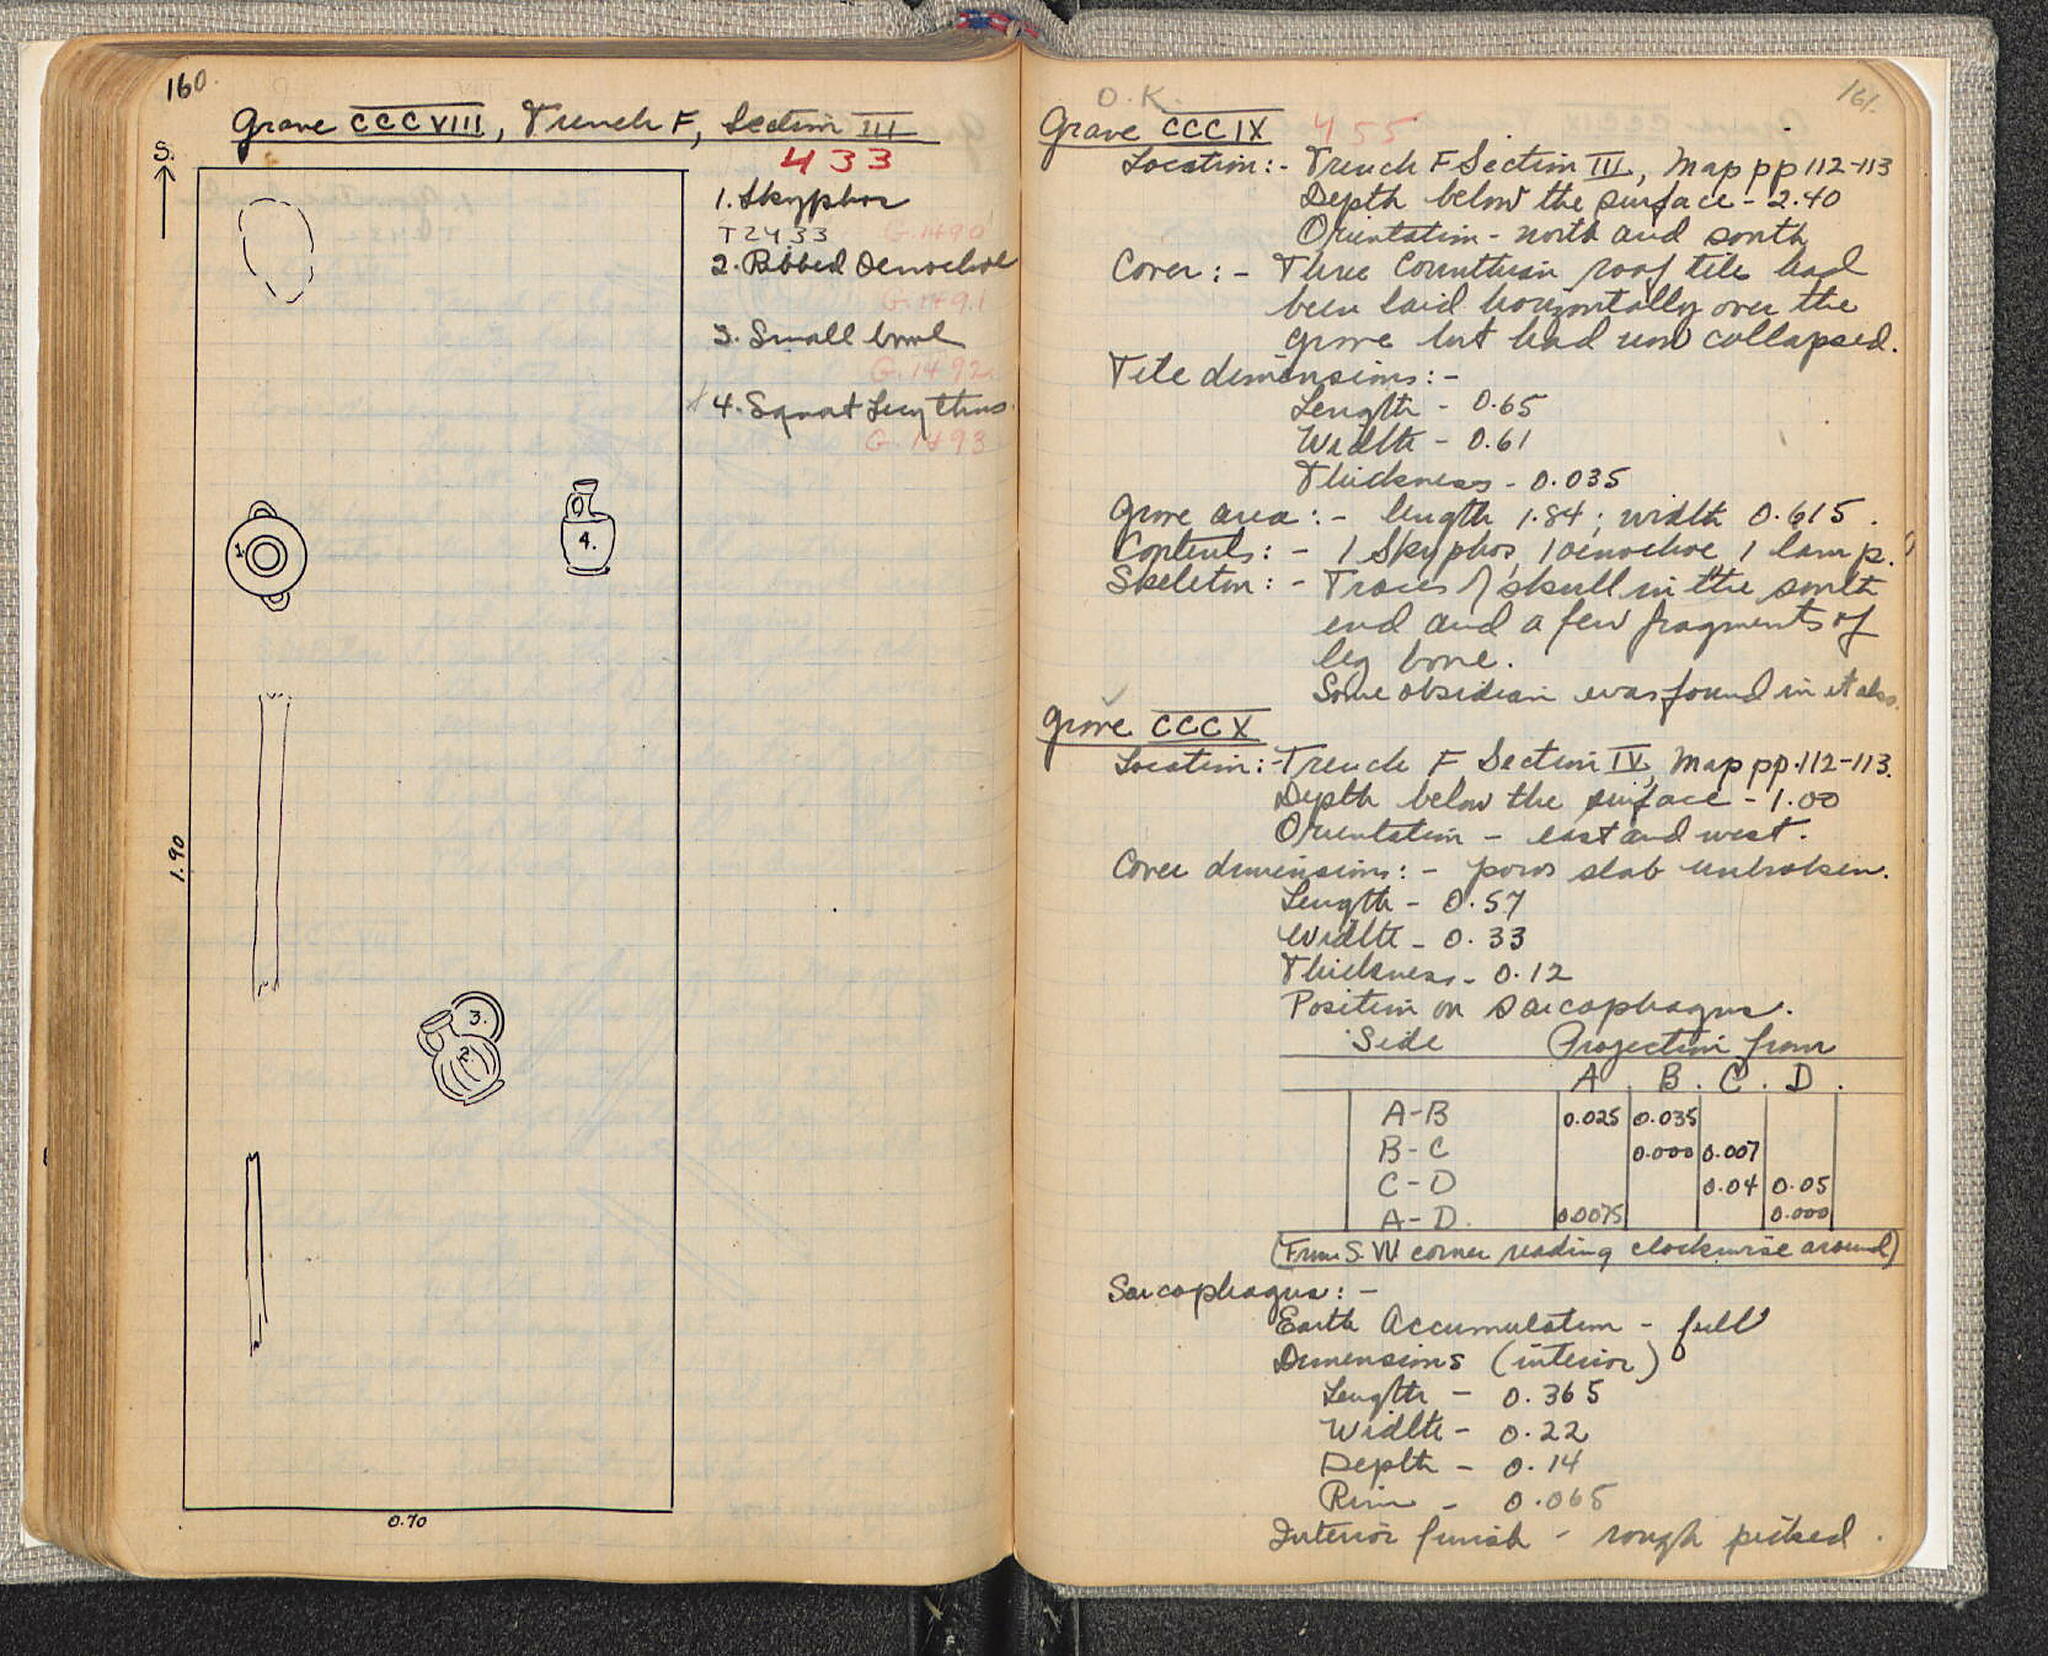 160.
Grave CCCVIII, Trench F, Section III
433
S.
1. Skyphos
T2433 G.1490
2. Ribbed Oenochoe
G.1491
3. Small bowl
G.1492
4. Squat Lecythus.
G.1493
1.
4.
1.90
3.
2.
0.70
161.
O.K.
Grave CCCIX 455
Location:- Trench F Section III, Map pp 112-113
Depth below the surface - 2.40
Orientation - north and south
Cover:- Three Corinthian roof tile had
been laid horizontally over the
grave but had now collapsed.
Tile dimensions:-
Length - 0.65
Width - 0.61
Thickness - 0.035
Grave area:- length 1.84; width 0.615.
Contents:- 1 Skyphos, 1 oenochoe, 1 lamp.
Skeleton:- Traces of skull in the south
end and a few fragments of
leg bone.
Some obsidian was found in it also.
Grave CCCX
Location:- Trench F Section IV, Map pp. 112-113.
Depth below the surface - 1.00
Orientation - east and west.
Cover dimensions:- poros slab unbroken.
Length - 0.57
Width - 0.33
Thickness - 0.12
Position on sarcophagus.
Side Projection from
A. B. C. D.
A-B 0.025 0.035
B-C 0.000 0.007
C-D 0.04 0.05
A-D. 0.0075 0.000
(From S.W corner reading clockwise around)
Sarcophagus:-
Earth Accumulation - full
Dimensions (interior)
Length - 0.365
Width - 0.22
Depth - 0.14
Rim - 0.065
Interior finish - rough picked.